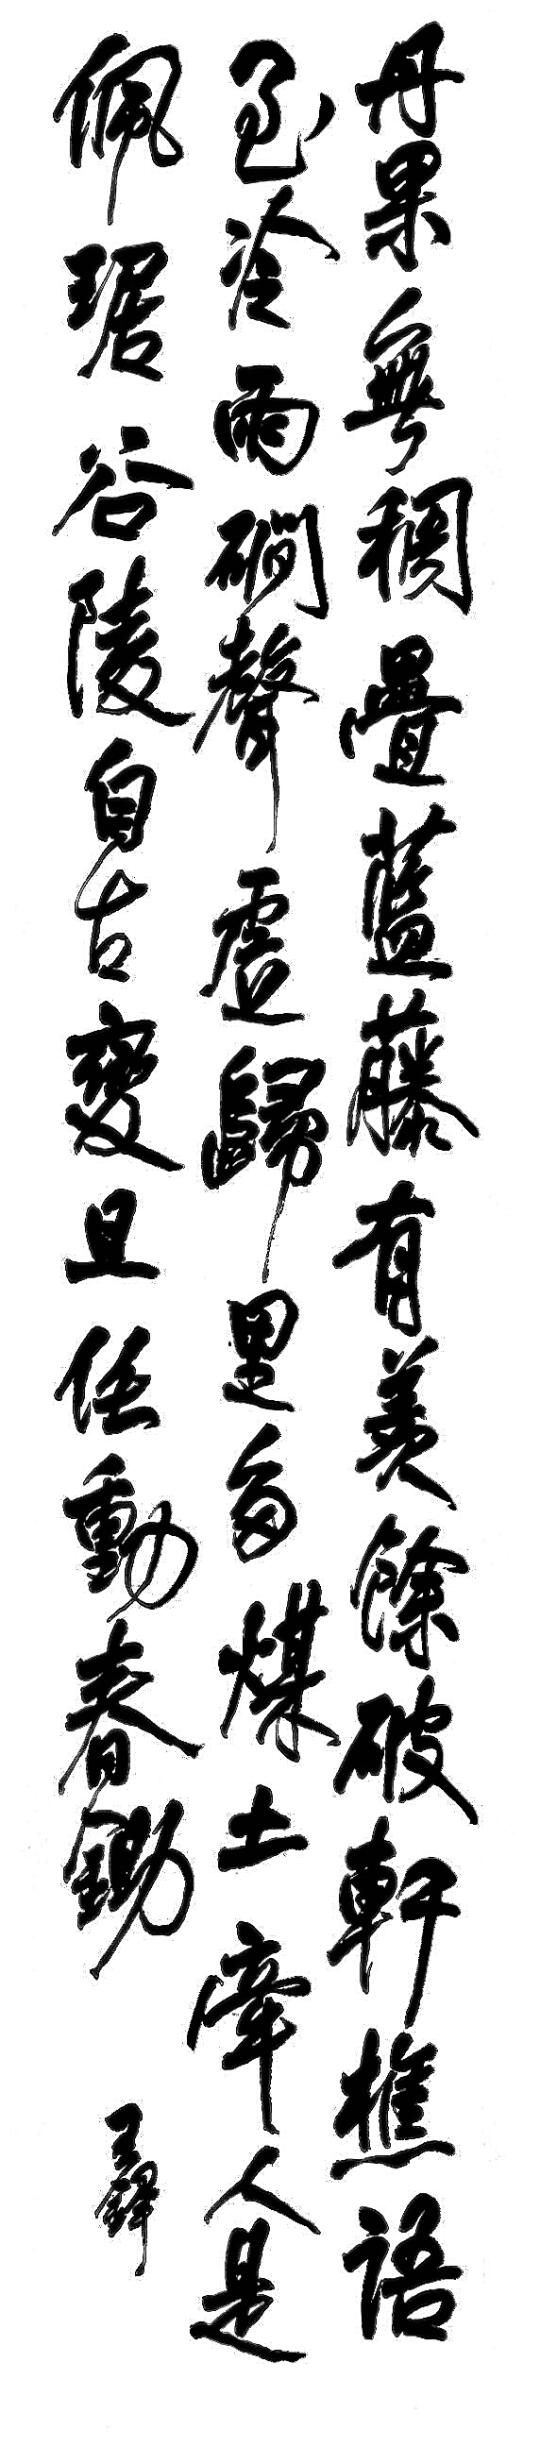 丹果無稠疊藍藤有羨餘破軒樵語
至冷雨磵聲虛歸里多煤土牽人是
佩琚谷陵自古變且任動春鋤
王鐸